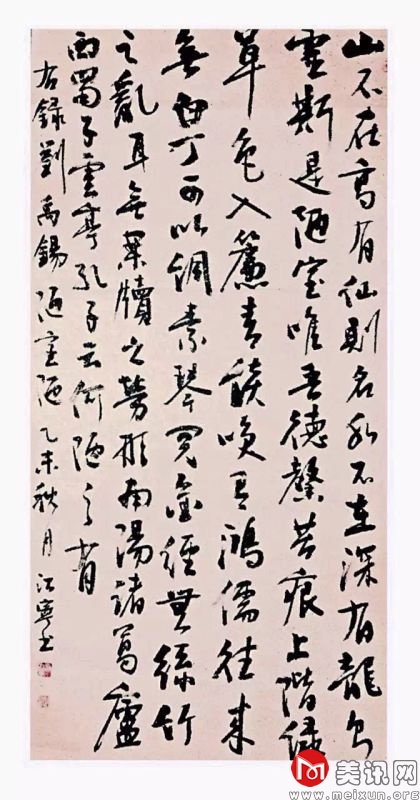 山不在高有仙則名水不在深有龍則
靈斯是陋室唯吾德馨苔痕上階綠
草色入簾青談笑有鴻儒往來
無白丁可以調素琴閱金經無絲竹
之亂耳無案牘之勞形南陽諸葛廬
西蜀子雲亭孔子云何陋之有
右錄劉禹錫陋室陋乙未秋月江寧书
美讯网
www.meixun.org